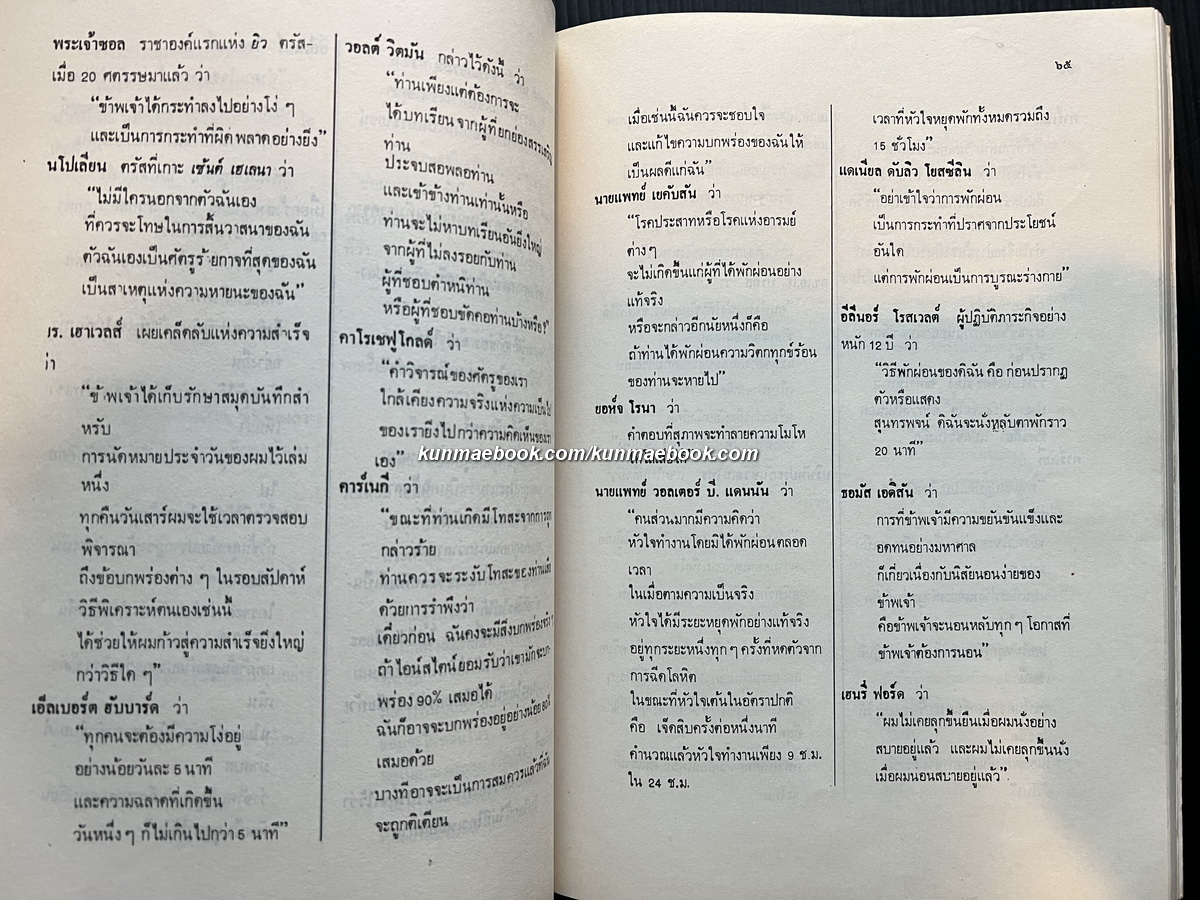 พระเจ้าซอล ราชาองค์แรกแห่ง ยิว ตรัส-
เมื่อ 20 ศตรรษมาแล้ว ว่า
“ข้าพเจ้าได้กระทำลงไปอย่างโง่ ๆ
และเป็นการกระทำที่ผิดพลาดอย่างยิ่ง”
นโปเลียน ตรัสที่เกาะ เซ้นต์ เฮเลนา ว่า
“ไม่มีใครนอกจากตัวฉันเอง
ที่ควรจะโทษในการสิ้นวาสนาของฉัน
ตัวฉันเองเป็นศัตรูร้ายกาจที่สุดของฉัน
เป็นสาเหตุแห่งความหายนะของฉัน”
เฮาเวลส์ เผยเคล็ดลับแห่งความสำเร็จ
ว่า
“ข้าพเจ้าได้เก็บรักษาสมุดบันทึกสำ
หรับ
การนัดหมายประจำวันของผมไว้เล่ม
หนึ่ง
ทุกคืนวันเสาร์ผมจะใช้เวลาตรวจสอบ
พิจารณา
ถึงข้อบกพร่องต่าง ๆ ในรอบสัปดาห์
วิธีพิเคราะห์ตนเองเช่นนี้
ได้ช่วยให้ผมก้าวสู่ความสำเร็จยิ่งใหญ่
กว่าวิธีใด ๆ”
เอ็ลเบอร์ต ฮับบาร์ด ว่า
“ทุกคนจะต้องมีความโง่อยู่
อย่างน้อยวันละ 5 นาที
และความฉลาดที่เกิดขึ้น
วันหนึ่ง ๆ ก็ไม่เกินไปกว่า 5 นาที”
วอลต์ วิตมัน กล่าวไว้ดังนี้ ว่า
“ท่านเพียงแต่ต้องการจะ
ได้บทเรียน จากผู้ที่ยกย่องสรรเสริญ
ท่าน
ประจบสอพลอท่าน
และเข้าข้างท่านเท่านั้นหรือ
ท่านจะไม่หาบทเรียนอันยิ่งใหญ่
จากผู้ที่ไม่ลงรอยกับท่าน
ผู้ที่ชอบตำหนิท่าน
หรือผู้ที่ชอบขัดคอท่านบ้างหรือ
คาโรเชฟูโกลด์ ว่า
“คำวิจารณ์ของศัตรูของเรา
ใกล้เคียงความจริงแห่งความเป็น
ของเรายิ่งไปกว่าความคิดเห็นของ
เอง”
คาร์เนกี้ ว่า
“ขณะที่ท่านเกิดมีโทสะจากการถูก
กล่าวร้าย
ท่านควรจะระงับโทสะของท่าน
ด้วยการรำพึงว่า
เดี๋ยวก่อน ฉันคงจะมีสิ่งบกพร่อง
ถ้าไอน์สไตน์ยอมรับว่าเขามักจะบก-
พร่อง 90% เสมอได้
ฉันก็อาจจะบกพร่องอยู่อย่างน้อย
เสมอด้วย
บางทีอาจจะเป็นการสมควรแล้วที่ฉัน
จะถูกติเตียน
๖๕
เมื่อเช่นนี้ฉันควรจะชอบใจ
และแก้ไขความบกพร่องของฉันให้
เป็นผลดีแก่ฉัน”
นายแพทย์ เยคับสัน ว่า
“โรคประสาทหรือโรคแห่งอารมย์
ต่าง ๆ
จะไม่เกิดขึ้นแก่ผู้ที่ได้พักผ่อนอย่าง
แท้จริง
หรือจะกล่าวอีกนัยหนึ่งก็คือ
ถ้าท่านได้พักผ่อนความวิตกทุกข์ร้อน
ของท่านจะหายไป”
ยอห์จ โรนา ว่า
คำตอบที่สุภาพจะทำลายความโมโห
kunmaebook.com/kunmaebook.com
นายแพทย์ วอลเตอร์ บี. แดนนัน ว่า
“คนส่วนมากมีความคิดว่า
หัวใจทำงานโดยมิได้พักผ่อนตลอด
เวลา
ในเมื่อตามความเป็นจริง
หัวใจได้มีระยะหยุดพักอย่างแท้จริง
อยู่ทุกระยะหนึ่งทุก ๆ ครั้งที่หดตัวจาก
การฉีดโลหิต
ในขณะที่หัวใจเต้นในอัตราปกติ
คือ เจ็ดสิบครั้งต่อหนึ่งนาที
คำนวณแล้วหัวใจทำงานเพียง 9 ช.ม.
ใน 24 ช.ม.
เวลาที่หัวใจหยุดพักทั้งหมดรวมถึง
15 ชั่วโมง”
แดเนียล ดับลิว โยสซีลิน ว่า
“อย่าเข้าใจว่าการพักผ่อน
เป็นการกระทำที่ปราศจากประโยชน์
อันใด
แต่การพักผ่อนเป็นการบูรณะร่างกาย”
อีลีนอร์ โรสเวลต์ ผู้ปฏิบัติภาระกิจอย่าง
หนัก 12 ปี ว่า
“วิธีพักผ่อนของดิฉัน คือ ก่อนปรากฏ
ตัวหรือแสดง
สุนทรพจน์ ดิฉันจะนั่งหลับตาพักราว
20 นาที”
ธอมัส เอดิสัน ว่า
การที่ข้าพเจ้ามีความขยันขันแข็งและ
อดทนอย่างมหาศาล
ก็เกี่ยวเนื่องกับนิสัยนอนง่ายของ
ข้าพเจ้า
คือข้าพเจ้าจะนอนหลับทุก ๆ โอกาสที่
ข้าพเจ้าต้องการนอน”
เฮนรี่ ฟอร์ด ว่า
“ผมไม่เคยลุกขึ้นยืนเมื่อผมนั่งอย่าง
สบายอยู่แล้ว และผมไม่เคยลุกขึ้นนั่ง
เมื่อผมนอนสบายอยู่แล้ว”